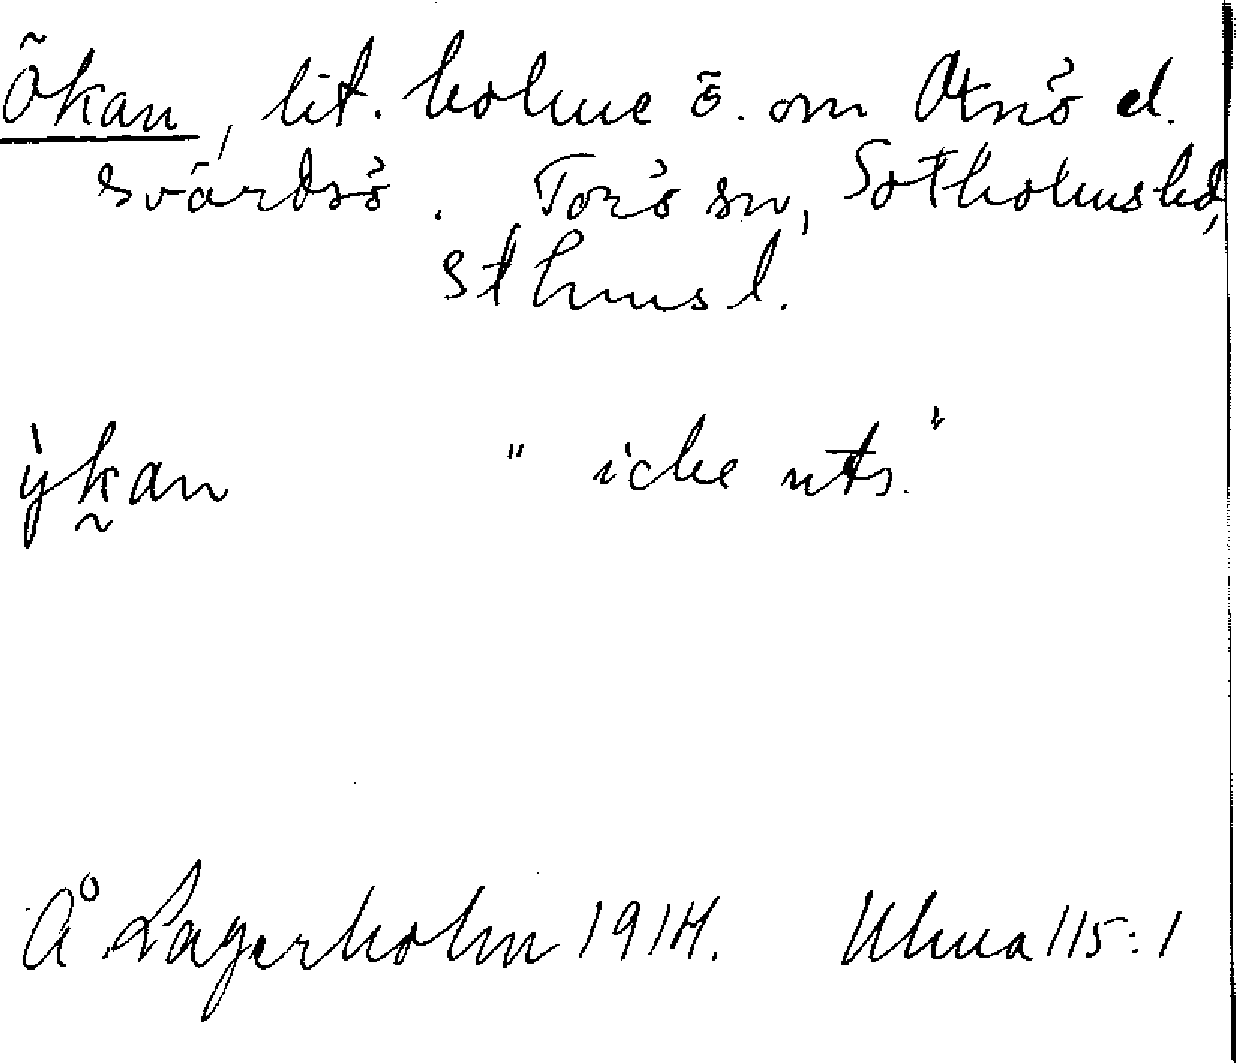 Ökan, lit. holme ö. om Otnö el.
Svärdsö. Torö sn, Sotholms hd,
Sthms l.
ỳkan " icke uts. "
Å Lagerholm 1914. Ulma 115:1